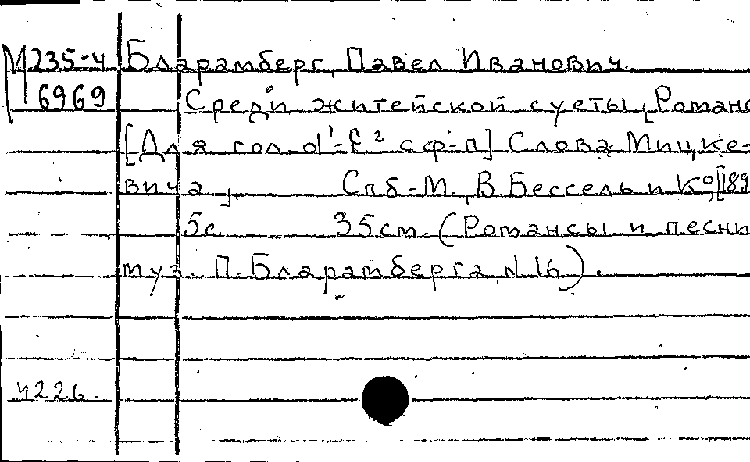 М 235-4 Бларамберг, Павел Иванович.
6969 Среди житейской суеты, Романс
[Для гол. d¹-f² с ф-п] Слова Мицке-
вича, Спб-М., В. Бессель и К⁰, [189
5с 35см (Романсы и песни
муз. П. Бларамберга, N.16).
4226.